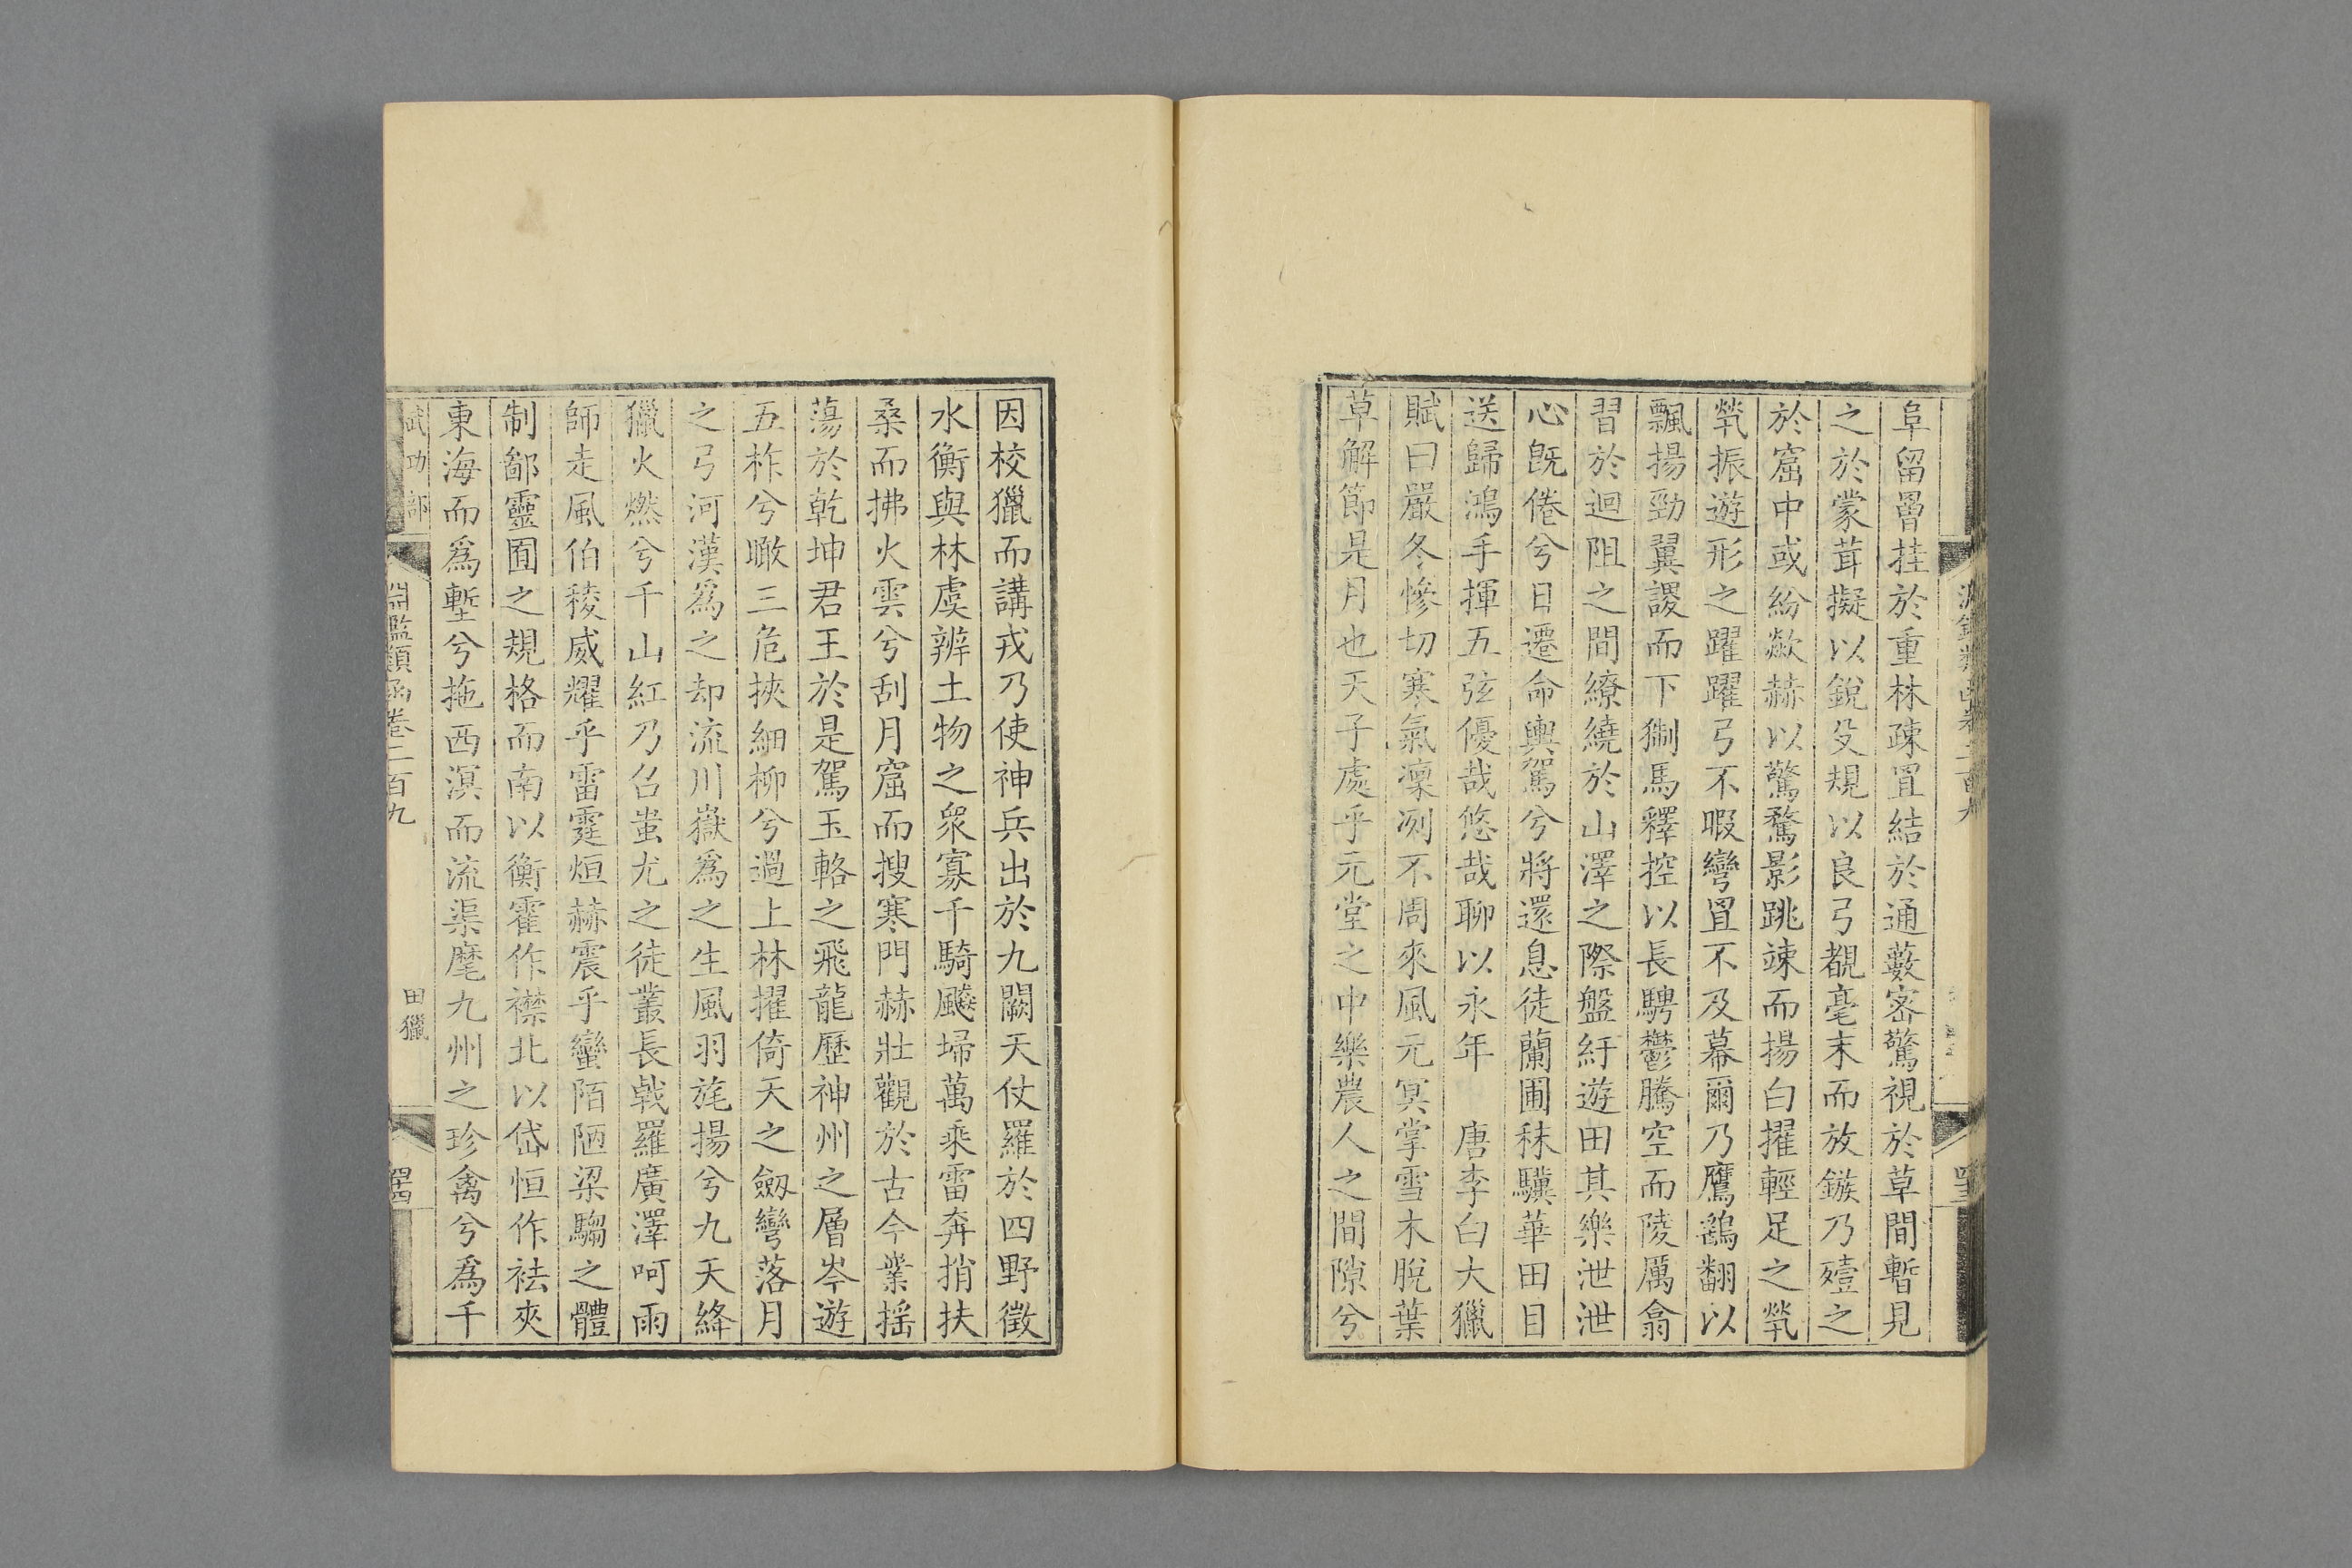 阜留罾挂於重林疎罝結於通藪密驚視於草間暫見
之於蒙茸擬以銳殳規以良弓覩毫末而放鏃乃殪之
於窟中或紛歘赫以驚騖影跳竦而揚白擢輕足之煢
煢振遊形之躍躍弓不暇彎罝不及幕爾乃鷹鷂翻以
飄揚勁翼謖而下猘馬釋控以長騁鬱騰空而陵厲翕
習於迴阻之間繚繞於山澤之際盤紆遊田其樂泄泄
心旣倦兮日遷命輿駕兮將還息徒蘭圃秣驥華田目
送歸鴻手揮五弦優哉悠哉聊以永年　唐李白大獵
賦曰嚴冬慘切寒氣凜冽不周來風元冥掌雪木脫葉
草解節是月也天子處乎元堂之中樂農人之間隙兮
因校獵而講戎乃使神兵出於九闕天仗羅於四野徵
水衡與林虞辨土物之衆寡千騎飈埽萬乘雷奔捎扶
桑而拂火雲兮刮月窟而搜寒門赫壯觀於古今業搖
蕩於乾坤君王於是駕玉輅之飛龍歷神州之層岑遊
五柞兮瞰三危挾細柳兮過上林擢倚天之劒彎落月
之弓河漢爲之却流川嶽爲之生風羽旄揚兮九天絳
獵火燃兮千山紅乃召蚩尤之徒叢長戟羅廣澤呵雨
師走風伯稜威耀乎雷霆烜赫震乎蠻陌陋梁騶之體
制鄙靈囿之規格而南以衡霍作襟北以岱恒作袪夾
東海而爲塹兮拖西溟而流渠麾九州之珍禽兮爲千
武功部
淵鑑類函卷二百九
田獵